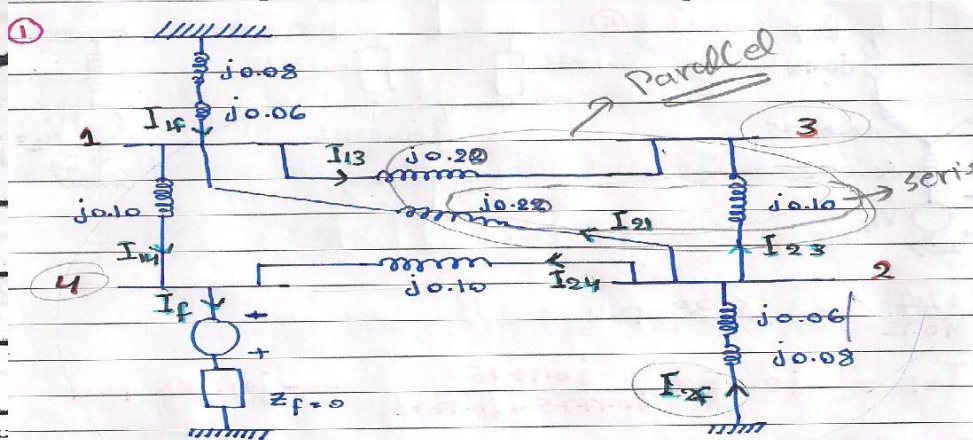 1
j0.08
j0.06
Parallel
I1f
1
3
I13
j0.20
j0.10
j0.20
seris
j0.10
I14
I21
I23
4
2
j0.10
I24
If
+
+
j0.06
j0.08
Zf=0
I2f